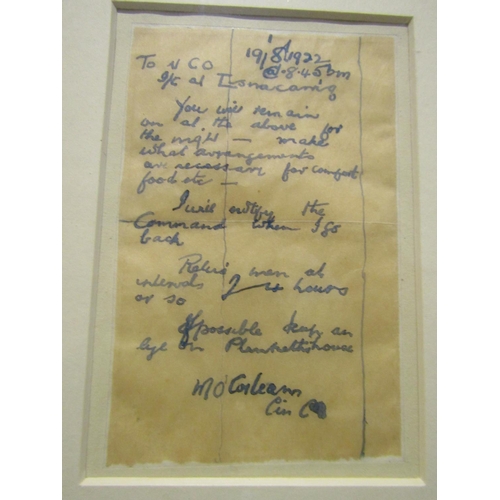 19/8/1922
To N C O @ 8.45 pm
I/C at
You will remain
on at the above for
the night — make
what arrangements
are necessary for comfort
food etc —
I will notify the
Command when I go
back
Relieve men at
intervals of 4 hours
or so
If possible keep an
eye on Plunketts house
M O'Coileain
C in C